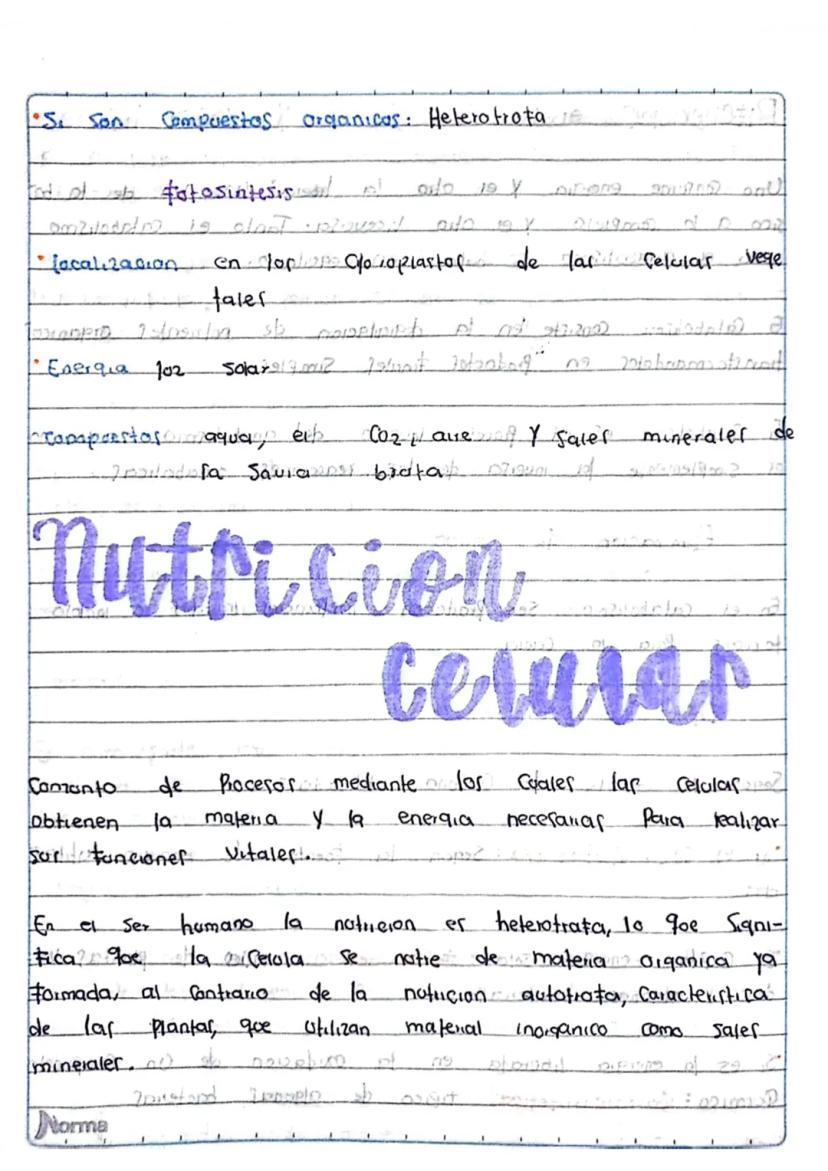 • Si son Compuestos organicos: Heterotrofa
fotosintesis
• localizacion en los Cloroplastos de las Celulas vege
tales
• Energia luz solar
Compuestos agua, el CO2 aire Y sales minerales de
la savia bruta
Nutricion
celular
Comunto de Procesos mediante los Cuales las celulas
obtienen la materia y la energia necesarias Para realizar
sus funciones vitales.
En el ser humano la nutricion es heterotrafa, lo que Signi-
fica que la Celula se nutre de materia organica ya
formada, al Contrario de la nutricion autotrofa, Caracteristica
de las plantas, que utilizan material inorganico como sales
minerales.
Norma